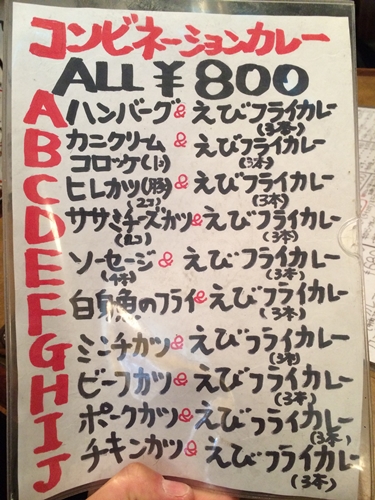 コンビネーションカレー
ALL ¥800
A ハンバーグ & えびフライカレー
(3本)
B カニクリーム
コロッケ(1ヶ) & えびフライカレー
(3本)
C ヒレカツ(豚) & えびフライカレー
(2コ) (3本)
D ササミチーズカツ & えびフライカレー
(3本)
E ソーセージ & えびフライカレー
(3本)
F 白身魚のフライ & えびフライカレー
(3本)
G ミンチカツ & えびフライカレー
(3本)
H ビーフカツ & えびフライカレー
(3本)
I ポークカツ & えびフライカレー
(3本)
J チキンカツ & えびフライカレー
(3本)